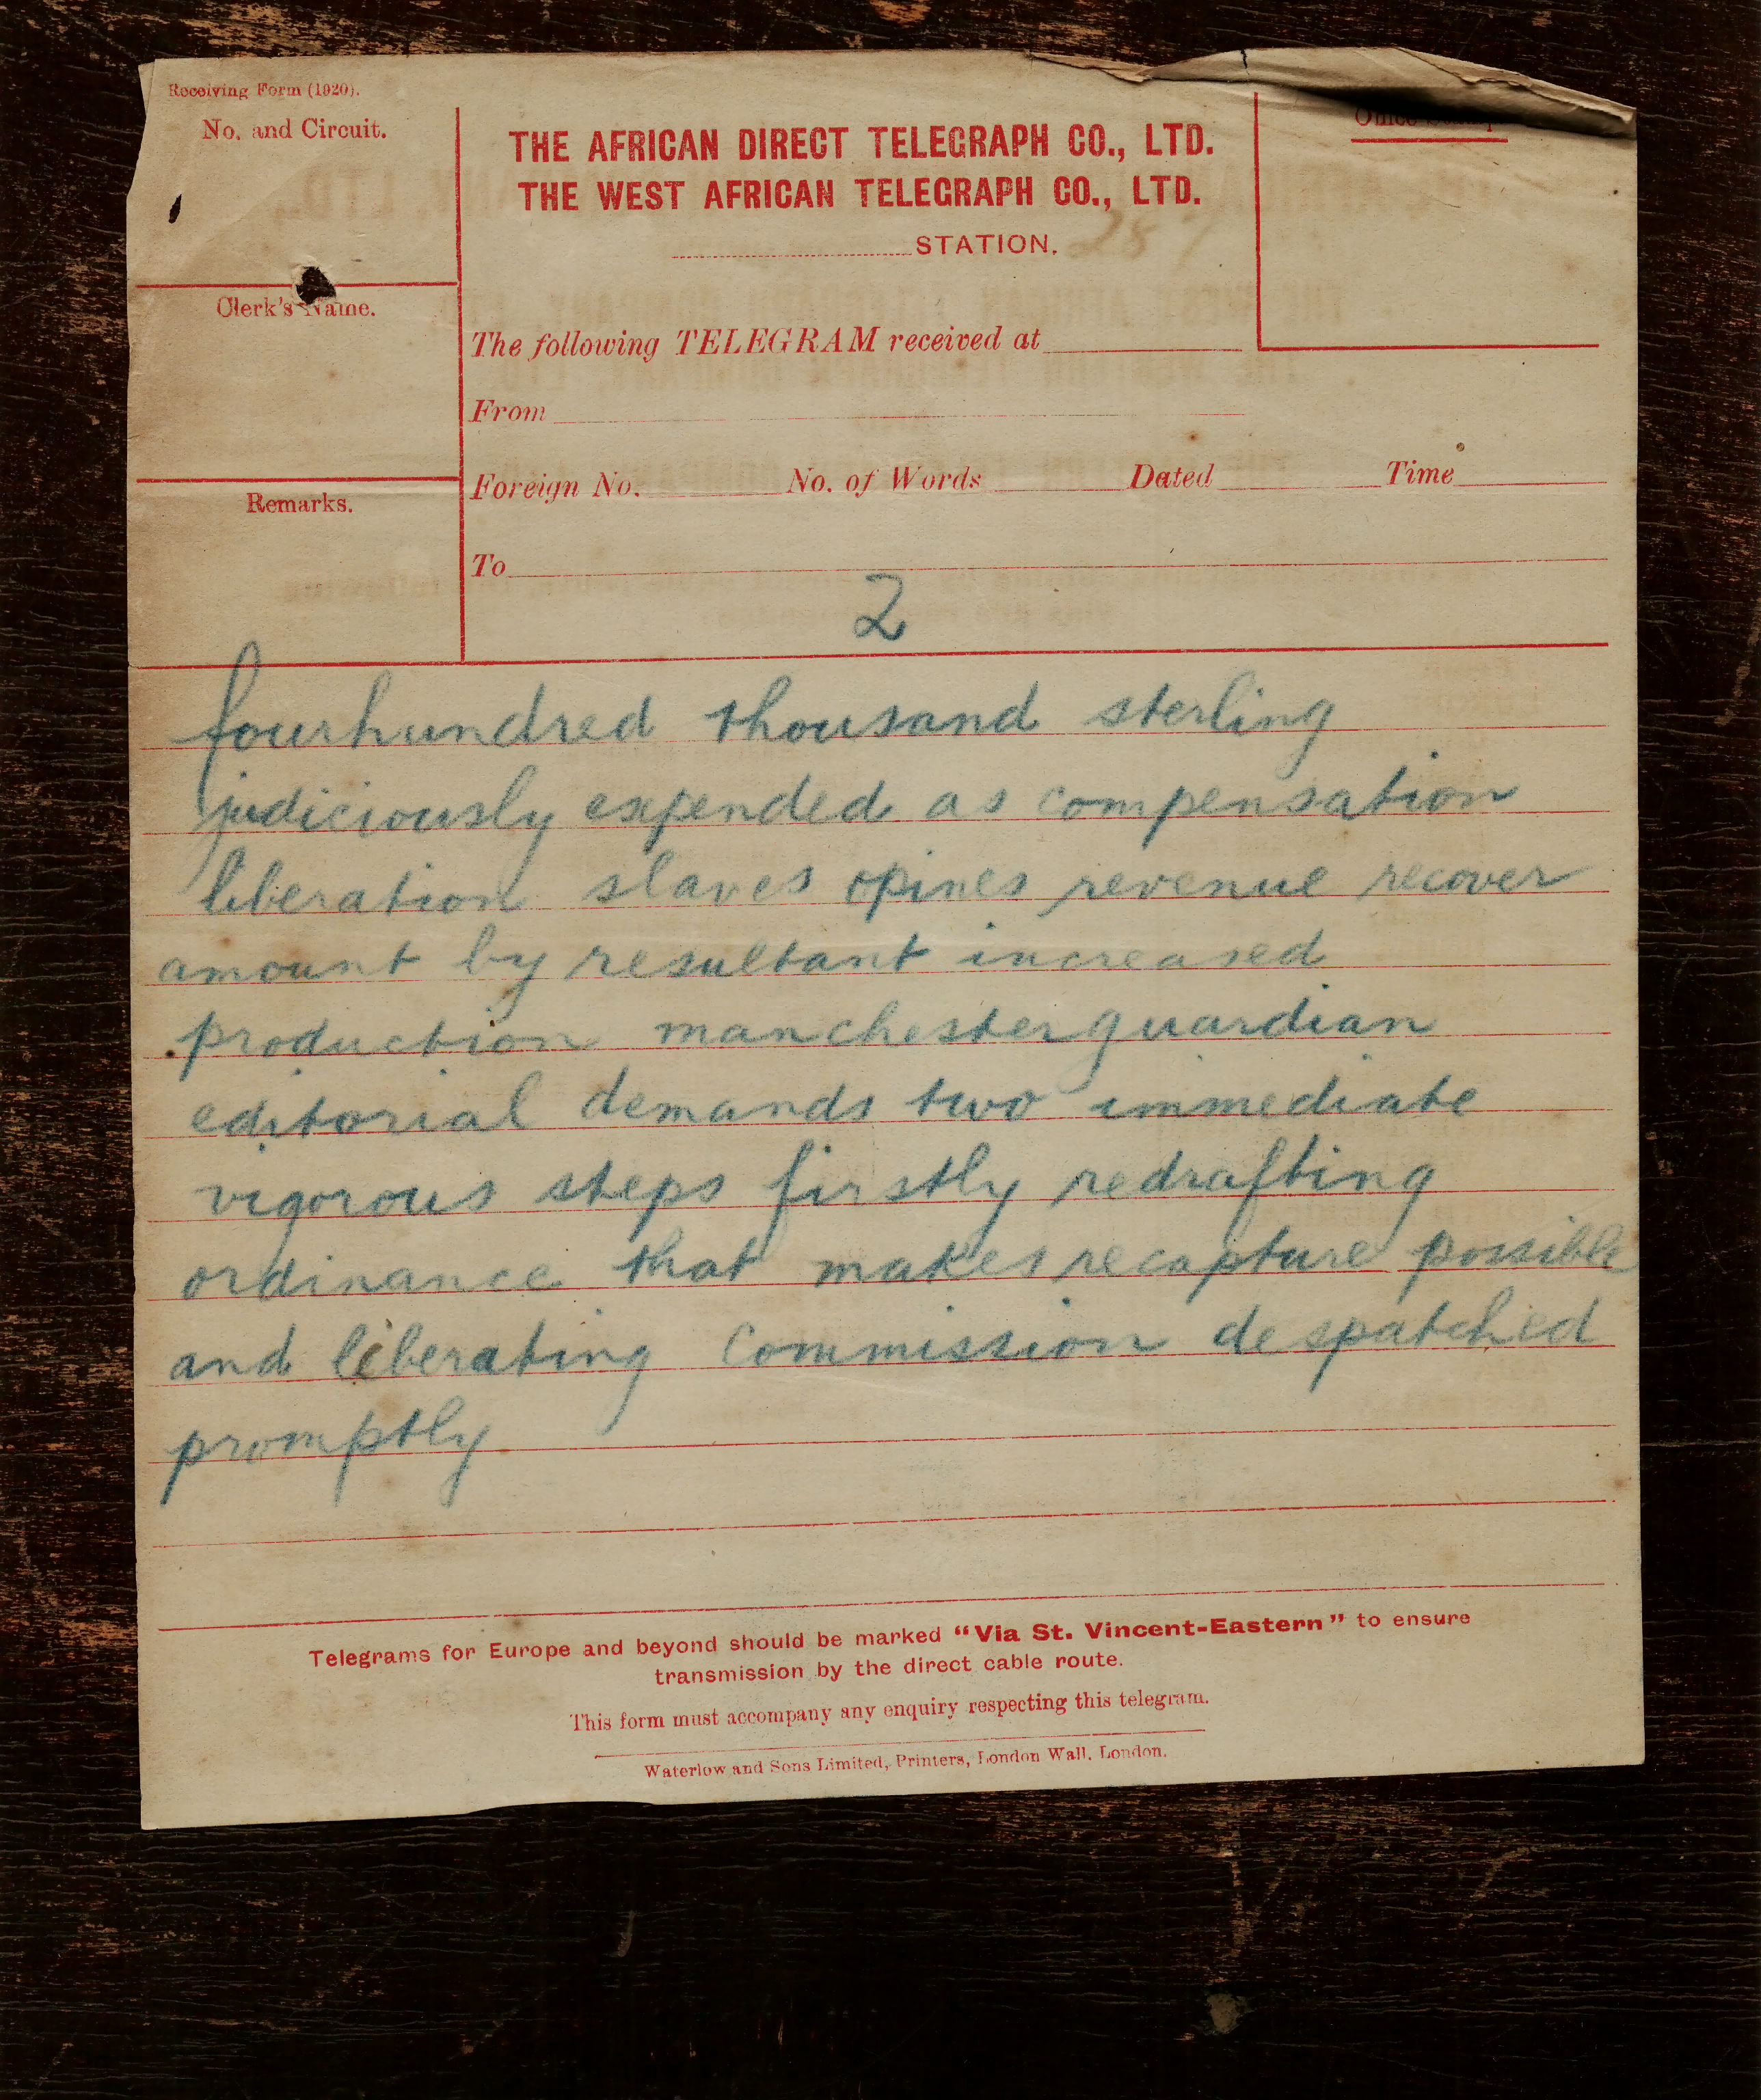 Receiving Form (1920).
No. and Circuit.
THE AFRICAN DIRECT TELEGRAPH CO., LTD.
THE WEST AFRICAN TELEGRAPH CO., LTD.
STATION. 287
Office
Clerk's Name.
The following TELEGRAM received at
From
Foreign No. No. of Words Dated Time
Remarks.
To
2
fourhundred thousand sterling
judiciously expended as compensation
liberation slaves opines revenue recover
amount by resultant increased
production manchesterguardian
editorial demands two immediate
vigorous steps firstly redrafting
ordinance that makes recapture possible
and liberating Commission despatched
promptly
Telegrams for Europe and beyond should be marked "Via St. Vincent-Eastern" to ensure
transmission by the direct cable route.
This form must accompany any enquiry respecting this telegram.
Waterlow and Sons Limited, Printers, London Wall, London.